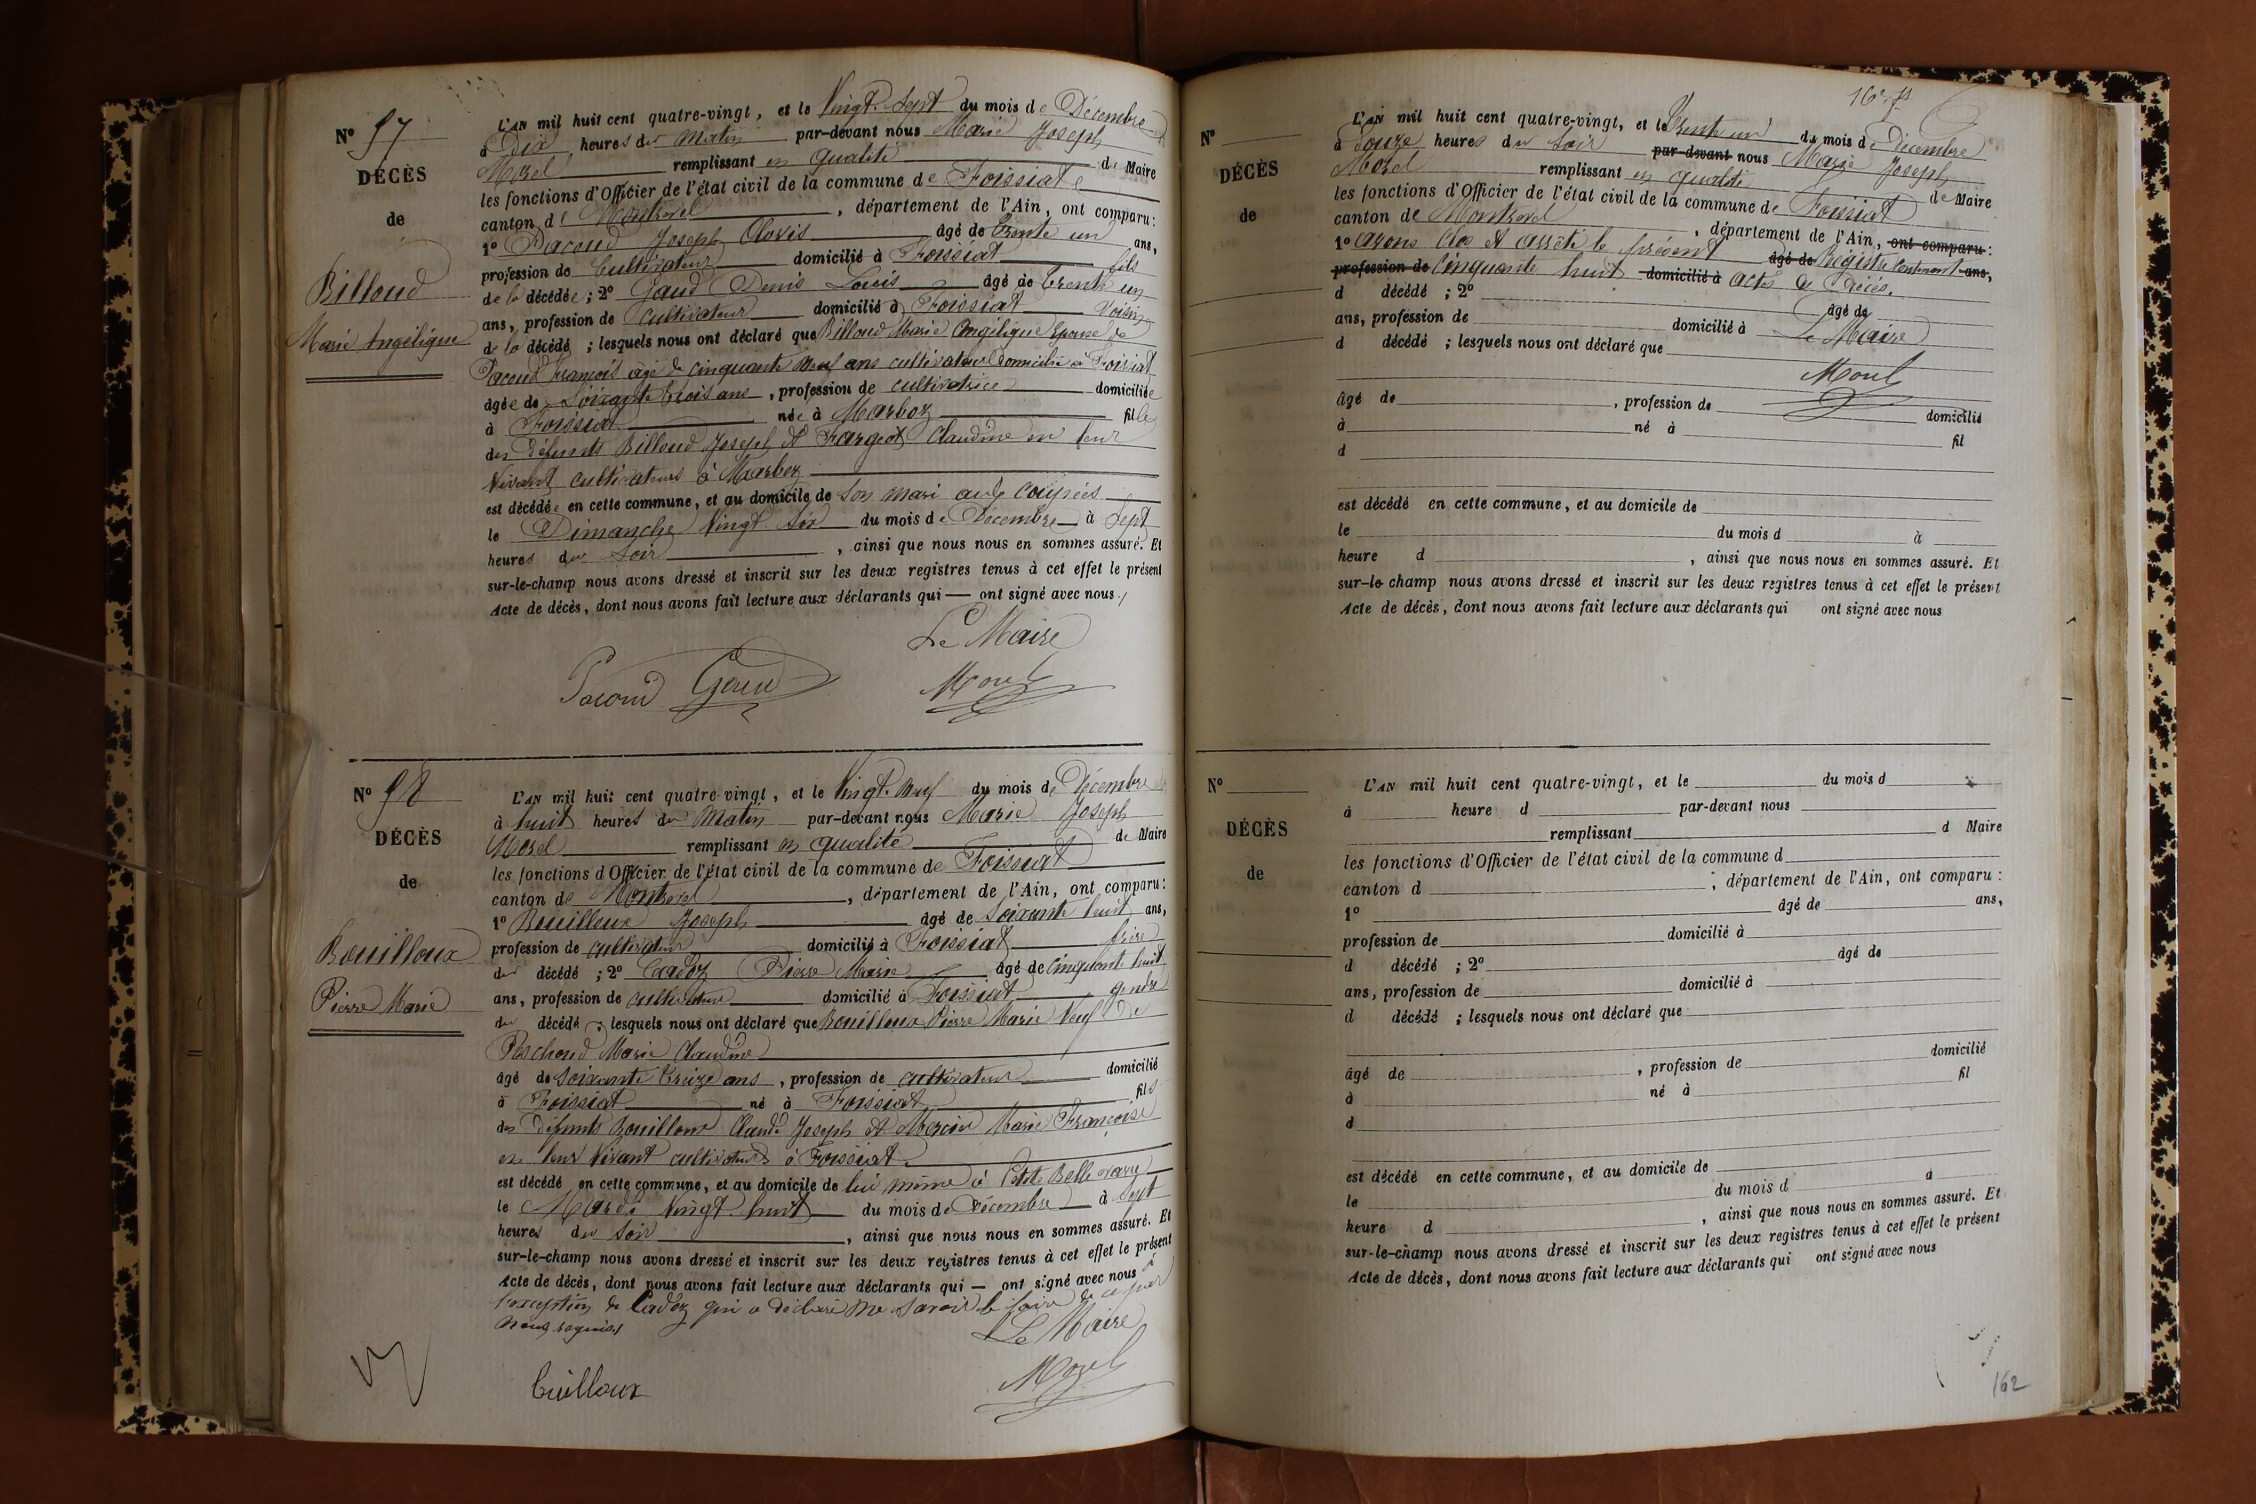 N° 57
DÉCÈS
de
Billoud
Marie Angélique
L'AN mil huit cent quatre-vingt, et le Vingt-Sept du mois de Décembre
à Dix heures du matin par-devant nous Marie Joseph
Morel remplissant en qualité de Maire
les fonctions d'Officier de l'état civil de la commune de Foissiat
canton de Montrevel, département de l'Ain, ont comparu:
1° Pacoud Joseph Clovis âgé de trente un ans,
profession de Cultivateur domicilié à Foissiat fils
de la décédée; 2° Gaud Denis Louis âgé de trente un
ans, profession de cultivateur domicilié à Foissiat voisin
de la décédé ; lesquels nous ont déclaré que Billoud Marie Angélique Epouse de
Pacoud François âgé de cinquante neuf ans cultivateur domicilié à Foissiat
âgée de Soixante trois ans, profession de cultivatrice domiciliée
à Foissiat née à Marboz fille
des défunts Billoud Joseph et Fargeot Claudine en leur
vivant cultivateurs à Marboz
est décédée en cette commune, et au domicile de son mari aux coupées
le Dimanche Vingt Six du mois de Décembre à Sept
heures du Soir, ainsi que nous nous en sommes assuré. Et
sur-le-champ nous avons dressé et inscrit sur les deux registres tenus à cet effet le présent
Acte de décès, dont nous avons fait lecture aux déclarants qui — ont signé avec nous
Le Maire
Pacoud Gaud Morel
N° 58
DÉCÈS
de
Bouilloux
Pierre Marie
L'AN mil huit cent quatre-vingt, et le Vingt-neuf du mois de Décembre
à huit heures du Matin par-devant nous Marie Joseph
Morel remplissant en qualité de Maire
les fonctions d'Officier de l'état civil de la commune de Foissiat
canton de Montrevel, département de l'Ain, ont comparu:
1° Bouilloux Joseph âgé de Soixante huit ans,
profession de cultivateur domicilié à Foissiat frère
du décédé ; 2° Cadoz Pierre Marie âgé de cinquante huit
ans, profession de cultivateur domicilié à Foissiat gendre
du décédé ; lesquels nous ont déclaré que Bouilloux Pierre Marie Veuf de
Perchoud Marie Claudine
âgé de soixante treize ans, profession de cultivateur domicilié
à Foissiat né à Foissiat fils
des défunts Bouilloux Claude Joseph et Mercier Marie Françoise
en leur vivant cultivateurs à Foissiat
est décédé en cette commune, et au domicile de lui même à Petite Bellevavre
le Mardi Vingt-huit du mois de Décembre à Sept
heures du Soir, ainsi que nous nous en sommes assuré. Et
sur-le-champ nous avons dressé et inscrit sur les deux registres tenus à cet effet le présent
Acte de décès, dont nous avons fait lecture aux déclarants qui — ont signé avec nous à
l'exception de Cadoz qui a déclaré ne savoir le faire de ce par
nous requis
Le Maire
Builloux Morel
N°
DÉCÈS
de
L'AN mil huit cent quatre-vingt, et le Trente un du mois de décembre
à douze heures du soir par-devant nous Marie Joseph
Morel remplissant en qualité de Maire
les fonctions d'Officier de l'état civil de la commune de Foissiat
canton de Montrevel, département de l'Ain, ont comparu:
1° avons clos et arrêté le présent âgé de Registre contenant ans,
profession de Cinquante huit domicilié à actes de Décès.
d décédé ; 2° âgé de
ans, profession de domicilié à Le Maire
d décédé ; lesquels nous ont déclaré que
Morel
âgé de , profession de domicilié
à né à fil
d
est décédé en cette commune, et au domicile de
le du mois d à
heure d , ainsi que nous nous en sommes assuré. Et
sur-le-champ nous avons dressé et inscrit sur les deux registres tenus à cet effet le présent
Acte de décès, dont nous avons fait lecture aux déclarants qui ont signé avec nous
N°
DÉCÈS
de
L'AN mil huit cent quatre-vingt, et le du mois d
à heure d par-devant nous
remplissant d Maire
les fonctions d'Officier de l'état civil de la commune d
canton d , département de l'Ain, ont comparu :
1° âgé de ans,
profession de domicilié à
d décédé ; 2° âgé de
ans, profession de domicilié à
d décédé ; lesquels nous ont déclaré que
âgé de , profession de domicilié
à né à fil
d
est décédé en cette commune, et au domicile de
le du mois d à
heure d , ainsi que nous nous en sommes assuré. Et
sur-le-champ nous avons dressé et inscrit sur les deux registres tenus à cet effet le présent
Acte de décès, dont nous avons fait lecture aux déclarants qui ont signé avec nous
162